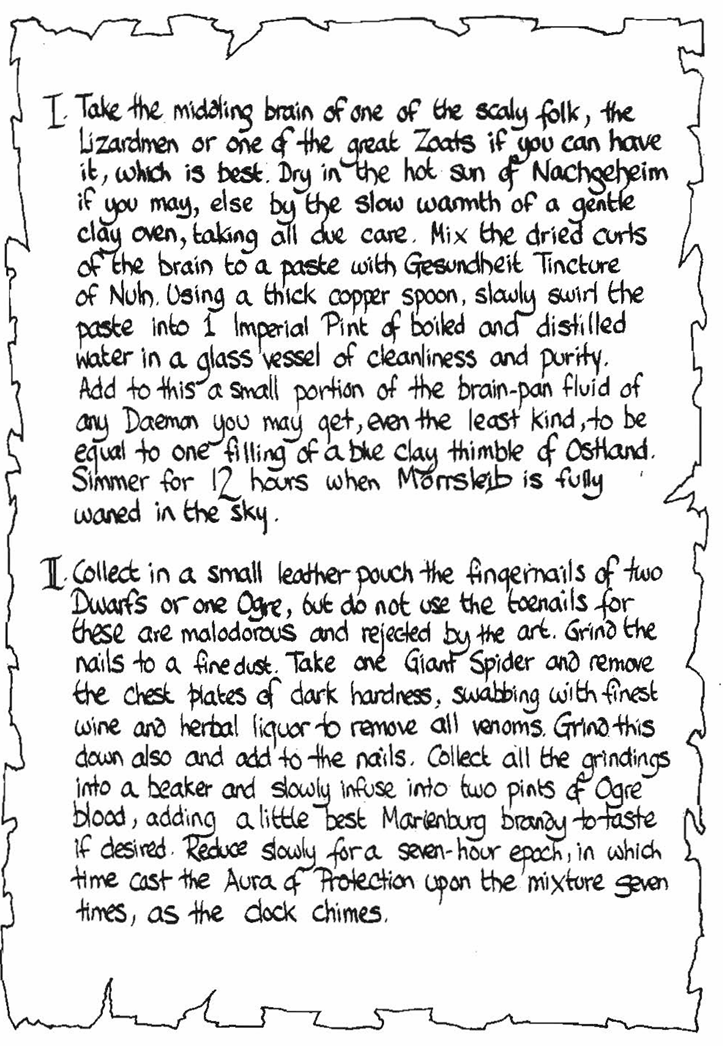 I. Take the middling brain of one of the scaly folk, the
Lizardmen or one of the great Zoats if you can have
it, which is best. Dry in the hot sun of Nachgeheim
if you may, else by the slow warmth of a gentle
clay oven, taking all due care. Mix the dried curts
of the brain to a paste with Gesundheit Tincture
of Nuln. Using a thick copper spoon, slowly swirl the
paste into 1 Imperial Pint of boiled and distilled
water in a glass vessel of cleanliness and purity.
Add to this a small portion of the brain-pan fluid of
any Daemon you may get, even the least kind, to be
equal to one filling of a blue clay thimble of Ostland.
Simmer for 12 hours when Morrsleib is fully
waned in the sky.
II. Collect in a small leather pouch the fingernails of two
Dwarfs or one Ogre, but do not use the toenails for
these are malodorous and rejected by the art. Grind the
nails to a fine dust. Take one Giant Spider and remove
the chest plates of dark hardness, swabbing with finest
wine and herbal liquor to remove all venoms. Grind this
down also and add to the nails. Collect all the grindings
into a beaker and slowly infuse into two pints of Ogre
blood, adding a little best Marienburg brandy to taste
if desired. Reduce slowly for a seven-hour epoch, in which
time cast the Aura of Protection upon the mixture seven
times, as the clock chimes.